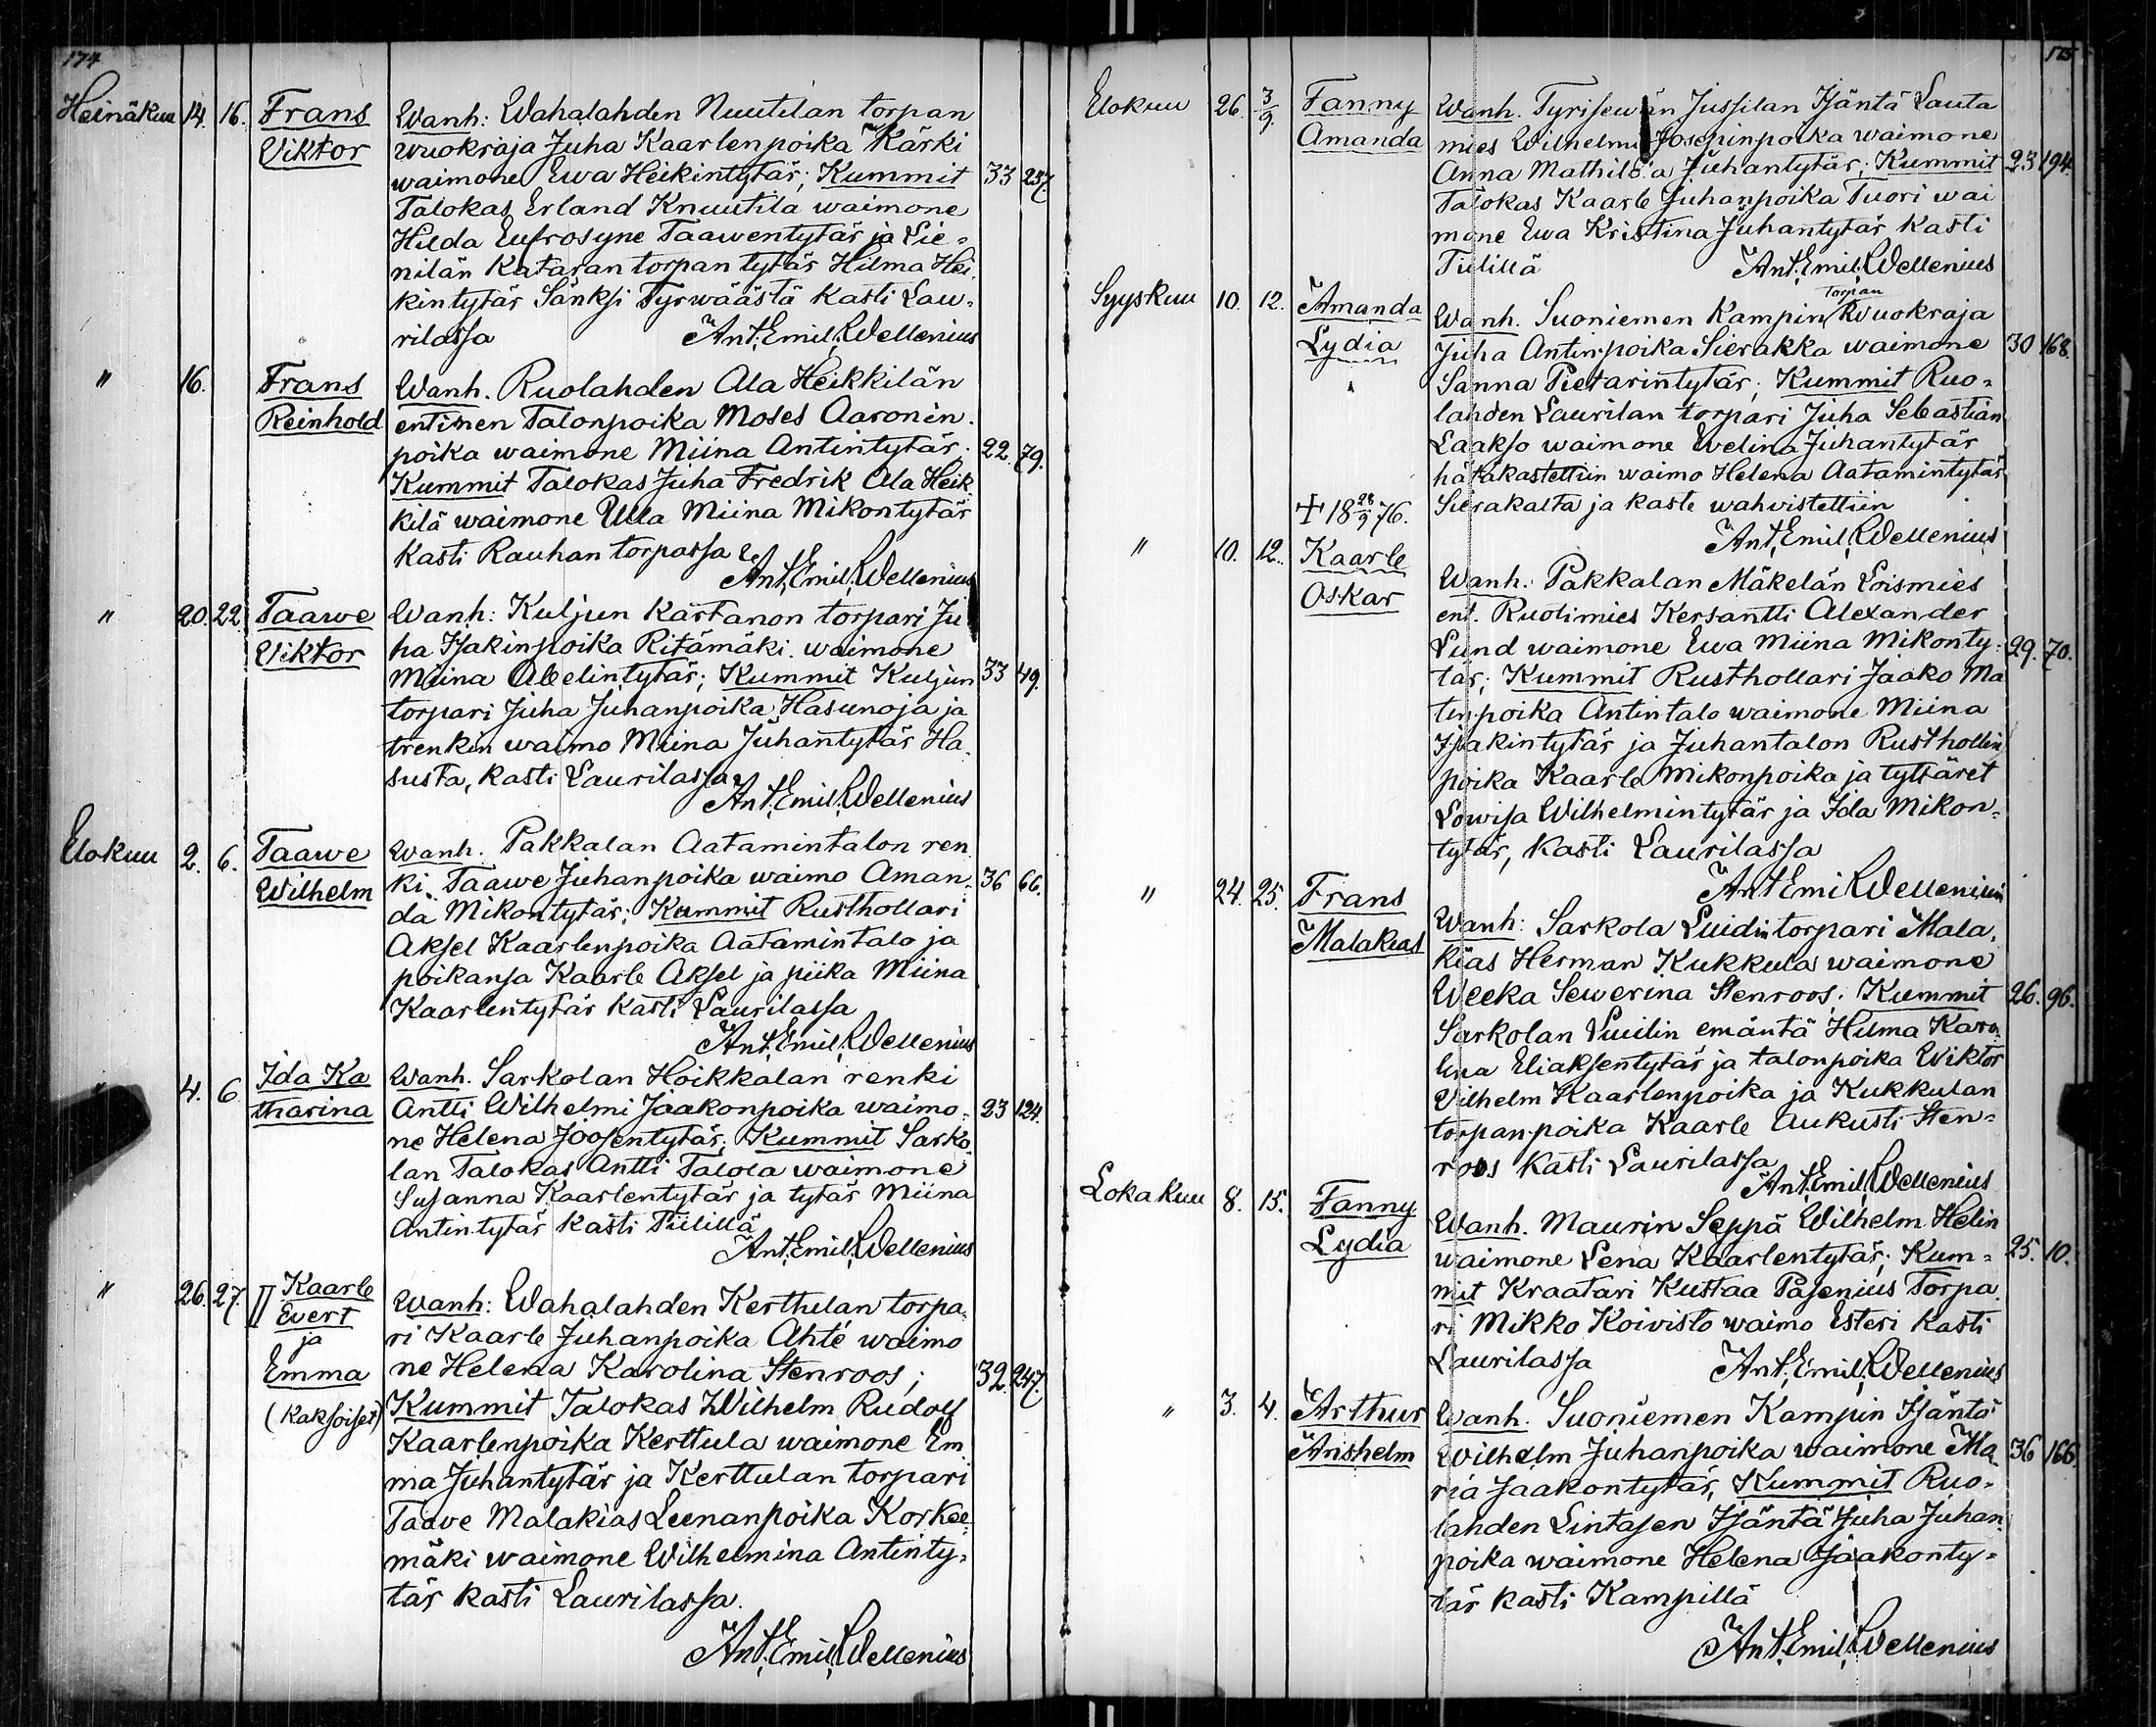 174
Heinäkuu 14. 16. Frans Wanh: Wahalahden Nuutilan torpan
Viktor wuokraja Juha Kaarlenpoika Kärki
waimone Ewa Heikintytär; Kummit 33 237.
Talokas Erland Knuutila waimone
Hilda Eufrosyne Taawentytär ja Lie-
nilän Kataran torpan tytär Hilma Hei-
kintytär Sänksi Tyrwäästä kasti Lau-
rilassa Ant. Emil. Wellenius
" 16. Frans Wanh. Ruolahden Ala Heikkilän
Reinhold entinen Talonpoika Moses Aaronin-
poika waimone Miina Antintytär; 22. 79.
Kummit Talokas Juha Fredrik Ala Heik
kilä waimone Ulla Miina Mikontytär
kasti Rauhan torpassa
Ant. Emil. Wellenius
" 20. 22. Taawe Wanh: Kuljun Kartanon torpari Ju
Viktor ha Isakinpoika Ritämäki waimone
Miina Abelintytär; Kummit Kuljun 33 49.
torpari Juha Juhanpoika Hasunoja ja
trenkin waimo Miina Juhantytär Ha-
susta, kasti Laurilassa
Ant. Emil. Wellenius
Elokuu 2. 6. Taawe Wanh. Pakkalan Aatamintalon ren
Wilhelm ki Taawe Juhanpoika waimo Aman- 36 66.
da Mikontytär; Kummit Rusthollari
Aksel Kaarlenpoika Aatamintalo ja
poikansa Kaarle Aksel ja piika Miina
Kaarlentytär kasti Laurilassa
Ant. Emil. Wellenius
" 4. 6. Ida Ka Wanh. Sarkolan Hoikkalan renki
tharina Antti Wilhelmi Jaakonpoika waimo- 23 124.
ne Helena Joosentytär; Kummit Sarko
lan Talokas Antti Talola waimone
Susanna Kaarlentytär ja tytär Miina
Antintytär kasti Tiilillä
Ant. Emil. Wellenius
" 26. 27. II Kaarle Wanh: Wahalahden Kerthulan torpa
Evert ri Kaarle Juhanpoika Ahté waimo
ja ne Helena Karolina Stenroos; 32. 247.
Emma Kummit Talokas Wilhelm Rudolf
(Kaksoiset) Kaarlenpoika Kerttula waimone Em
ma Juhantytär ja Kerttulan torpari
Taave Malakias Leenanpoika Korkee-
mäki waimone Wilhelmina Antinty-
tär kasti Laurilassa.
Ant. Emil. Wellenius
175
Elokuu 26. 3/9. Fanny Wanh. Tyrisewän Jussilan Isäntä Lauta
Amanda mies Wilhelmi Josepinpoika waimone
Anna Mathilda Juhantytär; Kummit 23 194.
Talokas Kaarle Juhanpoika Tuori wai
mone Ewa Kristina Juhantytär kasti
Tiilillä Ant. Emil. Wellenius
Syyskuu 10. 12. Amanda Wanh. Suoniemen Kampin torpan Wuokraja
Lydia Juha Antinpoika Sierakka waimone 30 168.
Sanna Pietarintytär; Kummit Ruo-
lahden Laurilan torpari Juha Sebastian
Laakso waimone Ewelina Juhantytär
hätäkastettiin waimo Helena Aatamintytär
+ 18 28/9 76. Sierakalta ja kaste wahvistettiin
Ant. Emil. Wellenius
" 10. 12. Kaarle Wanh: Pakkalan Mäkelän Loismies
Oskar ent. Ruotimies Kersantti Alexander
Lund waimone Ewa Miina Mikonty- 29. 70.
tär; Kummit Rusthollari Jaako Ma
tinpoika Antintalo waimone Miina
Isakintytär ja Juhantalon Rusthollin
poika Kaarle Mikonpoika ja tyttäret
Lowisa Wilhelmintytär ja Ida Mikon-
tytär, kasti Laurilassa
Ant Emil Wellenius
" 24. 25. Frans Wanh: Sarkola Luidin torpari Mala-
Malakias kias Herman Kukkula waimone
Weeka Sewerina Stenroos; Kummit 26. 96.
Sarkolan Luilin emäntä Hilma Karo
lina Eliaksentytär ja talonpoika Wiktor
Vilhelm Kaarlenpoika ja Kukkulan
torpanpoika Kaarle Aukusti Sten-
roos kasti Laurilassa
Ant. Emil. Wellenius
Lokakuu 8. 15. Fanny Wanh. Maurin Seppä Wilhelm Helin
Lydia waimone Lena Kaarlentytär; Kum- 25. 10.
mit Kraatari Kustaa Pasenius Torpa
ri Mikko Koivisto waimo Esteri kasti
Laurilassa Ant. Emil. Wellenius
" 3. 4. Arthur Wanh. Suoniemen Kampin Isäntä
Anshelm Wilhelm Juhanpoika waimone Ma- 36 166.
ria Jaakontytär, Kummit Ruo-
lahden Lintasen Isäntä Juha Juhan
poika waimone Helena Jaakonty-
tär kasti Kampillä
Ant. Emil. Wellenius